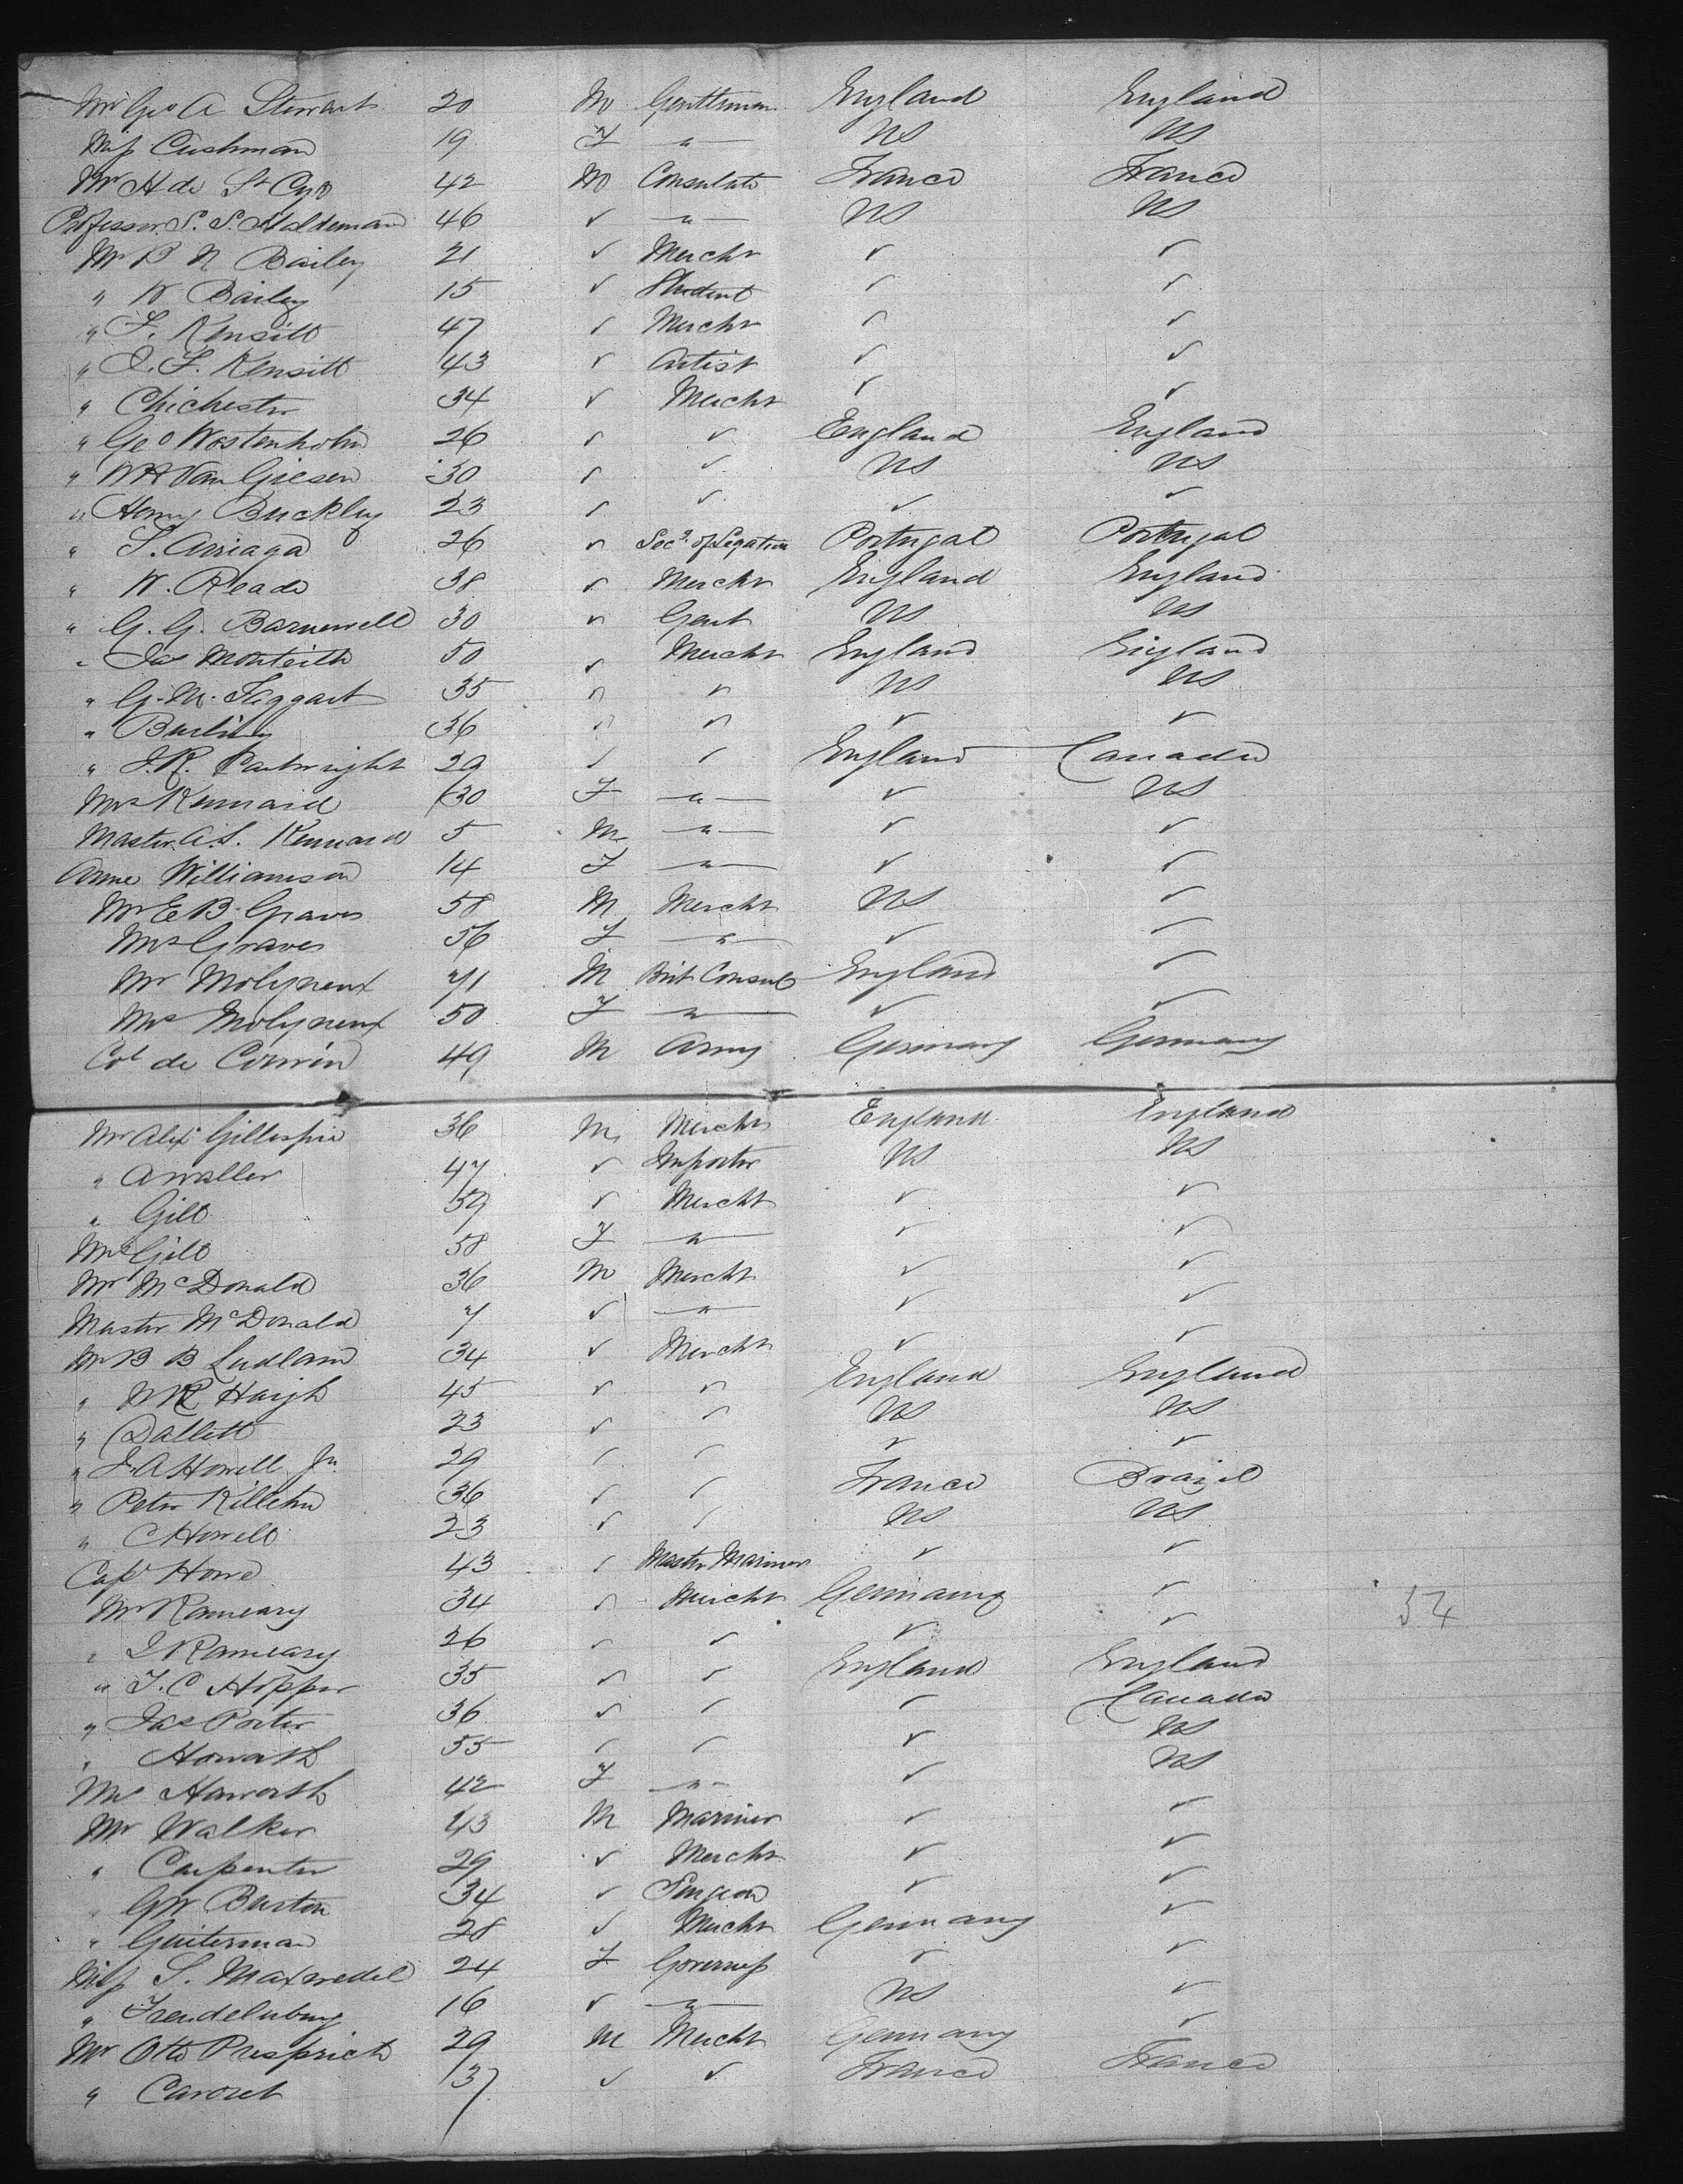 Mr Geo A Stewart 20 M Gentleman England England
Miss Cushman 19 F " US US
Mr H de St Cyr 42 M Consulate France France
Professor S. S. Haldeman 46 ✓ " US US
Mr B N Bailey 21 ✓ Mercht ✓ ✓
" W Bailey 15 ✓ Student ✓ ✓
" F. Kensitt 47 ✓ Mercht ✓ ✓
" J. F. Kensitt 43 ✓ Artist ✓ ✓
" Chichester 34 ✓ Mercht ✓ ✓
" Geo Wostenholm 26 ✓ ✓ England England
" W H Van Giesen 30 ✓ ✓ US US
" Henry Buckley 23 ✓ ✓ ✓ ✓
" S. Arriaga 26 ✓ Secy of Legation Portugal Portugal
" W. Reade 38 ✓ Mercht England England
" G. G. Barnewell 30 ✓ Gent US US
" Jas Monteith 50 ✓ Mercht England England
" G. M. Taggart 35 ✓ ✓ US US
" Burling 36 ✓ ✓ ✓ ✓
" J. R. Cartwright 29 ✓ ✓ England Canada
Mrs Kennard 30 F " ✓ US
Master A. S. Kennard 5 M " ✓ ✓
Anne Williamson 14 F " ✓ ✓
Mr E B Graves 58 M Mercht US ✓
Mrs Graves 56 F " ✓ ✓
Mr Molyneux 71 M Brit Consul England ✓
Mrs Molyneux 50 F " ✓ ✓
Col de Corwin 49 M Army Germany Germany
Mr Alex Gillespie 36 M Mercht England England
" A Waller 47 ✓ Importer US US
" Gill 59 ✓ Mercht ✓ ✓
Mrs Gill 58 F " ✓ ✓
Mr McDonald 36 M Mercht ✓ ✓
Master McDonald 7 ✓ " ✓ ✓
Mr B B Ludlam 34 ✓ Mercht ✓ ✓
" Haigh 45 ✓ ✓ England England
" Dallett 23 ✓ ✓ US US
" J. A Howell Jr. 29 ✓ ✓ ✓ ✓
" Peter 36 ✓ ✓ France Brazil
" C Howell 23 ✓ ✓ US US
Capt Howe 43 ✓ Master Mariner ✓ ✓
Mr 34 ✓ Mercht Germany ✓
" 26 ✓ ✓ ✓ ✓
" T. C Hopper 35 ✓ ✓ England England
" Jas Porter 36 ✓ ✓ ✓ Canada
" Howarth 55 ✓ ✓ ✓ US
Mrs Howarth 42 F " ✓ US
Mr Walker 43 M Mariner ✓ ✓
" Carpenter 29 ✓ Mercht ✓ ✓
" G W Burton 34 ✓ Surgeon ✓ ✓
" Guiterman 28 ✓ Mercht Germany ✓
Miss S. 24 F Governess ✓ ✓
" 16 ✓ " US ✓
Mr Otto 29 M Mercht Germany ✓
" Carozet 37 ✓ ✓ France France
54